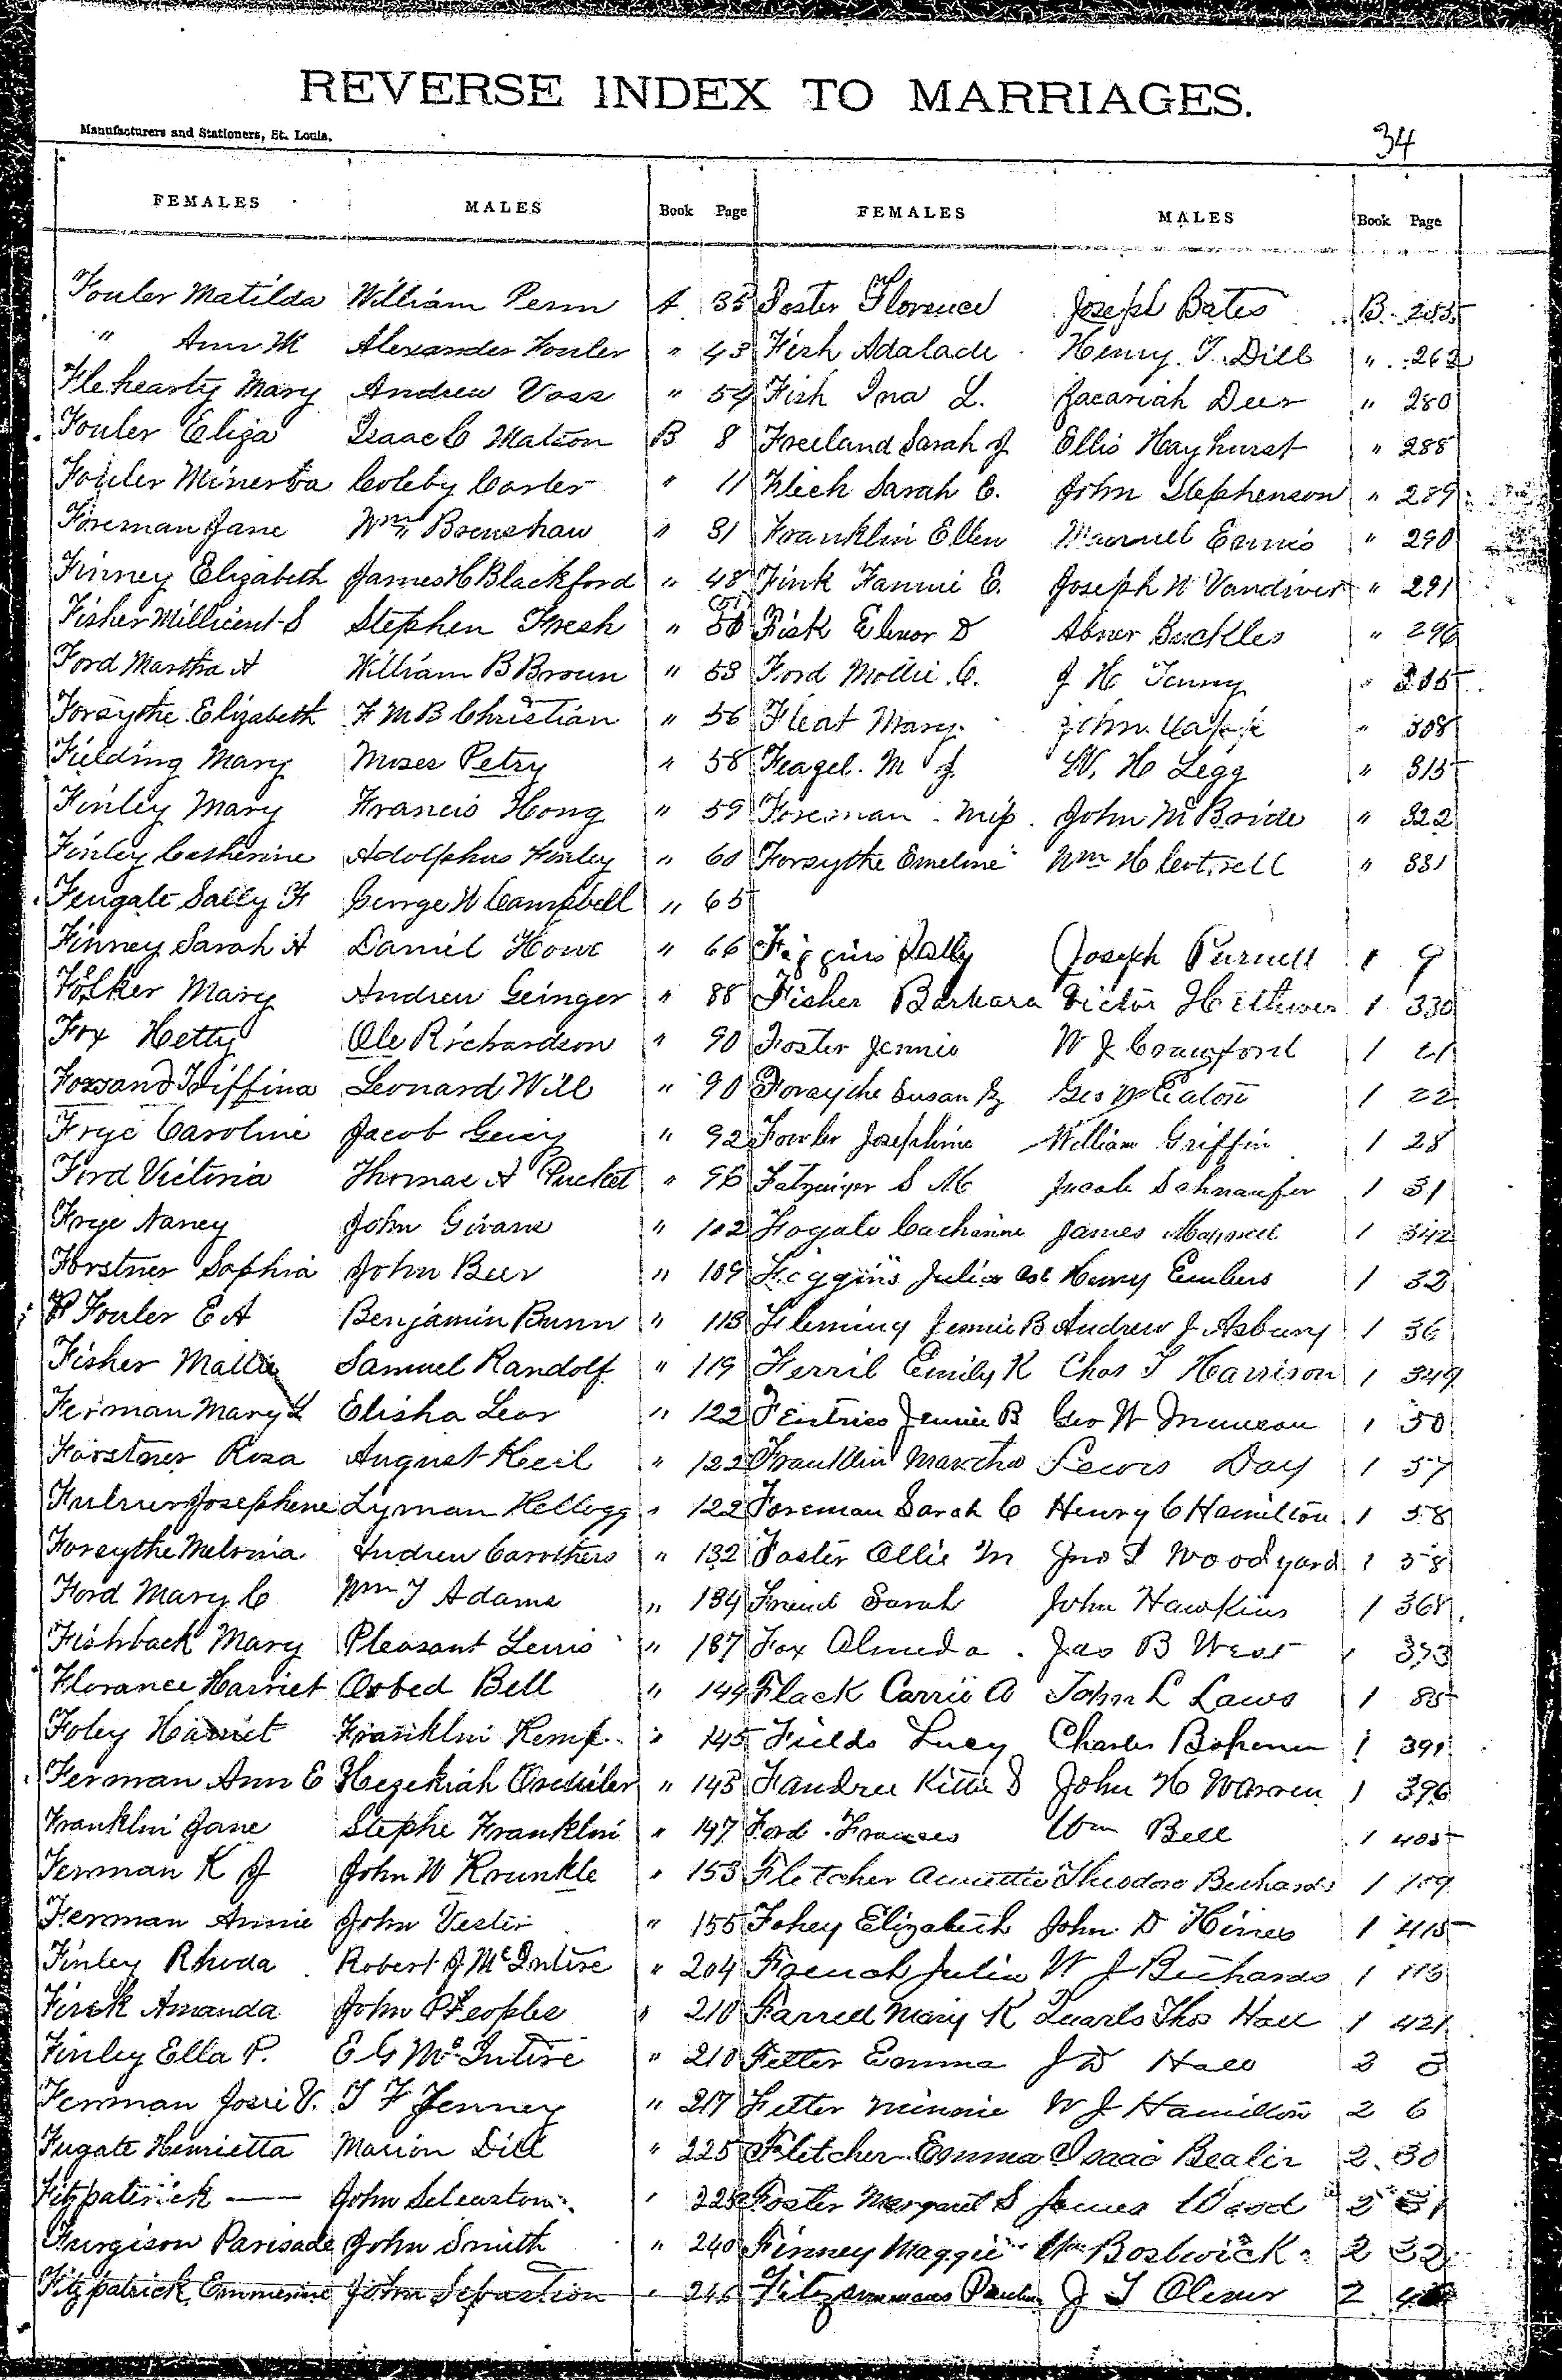 REVERSE INDEX TO MARRIAGES.
Manufacturers and Stationers, St. Louis.
34
FEMALES MALES Book Page FEMALES MALES Book Page
Fouler Matilda William Penn A 35 Foster Florence Joseph Bates B. 255
" Ann M Alexander Fouler " 43 Fish Adalade Henry. T. Dill " 262
Flehearty Mary Andrew Voss " 54 Fish Ina L. Zacariah Deer " 280
Fouler Eliza Isaac C Matson B 8 Freeland Sarah J Ellis Hayhurst " 288
Fouler Minerva Coleby Carter " 11 Flech Sarah C. John Stephenson " 289
Foreman Jane Wm Brenshaw " 31 Franklin Ellen Ennis " 290
Finney Elizabeth James H Blackford " 48 Fink Fannie E. Joseph W Vandiver " 291
Fisher Millicent S Stephen Fresh " 50 Fisk Elenor D Abner Buckles " 296
Ford Martha A William B Broun " 53 Ford Mollie C. J H Tenny "
Forsythe Elizabeth F M B Christian " 56 Fleat Mary John " 308
Fielding Mary Moses Petry " 58 Feagel. M J W. H Legg " 315
Finley Mary Francis Hong " 59 Foreman Miss John McBride " 322
Finley Catherine Adolphus Finley " 60 Forsythe Emeline Wm H Cotrell " 331
Fengate Sally F George W Campbell " 65
Finney Sarah A Daniel Howe " 66 Figgins Sally Joseph Purnell 1 9
Folker Mary Andrew Geinger " 88 Fisher Barbara Victor 1 330
Fox Hetty Ole Richardson " 90 Foster Jennie W J Crawford 1 21
Foxsand Tiffina Leonard Will " 90 Forsythe Susan Geo W Eaton 1 22
Frye Caroline Jacob Geiey " 92 Fowler Josephine William Griffin 1 28
Ford Victoria Thomas A Pucket " 96 S M Jacob Schnaufer 1 31
Frye Nancy John Givans " 102 Fogate Catharine James 1 342
Forstner Sophia John Beer " 109 Figgins Julia Col Henry Embers 1 32
Fouler E A Benjamin Bunn " 113 Fleming Jennie B Andrew J Asbury 1 36
Fisher Mattie Samuel Randolf " 119 Ferril Emily K Chas T Harrison 1 349
Ferman Mary L Elisha Lear " 122 Fentries Jennie B Geo W 1 50
Forstner Rosa August Keil " 122 Franklin Martha Lewis Day 1 57
Josephene Lyman Kellogg " 122 Foreman Sarah C Henry C Hamilton 1 58
Forsythe Melvina Andrew Carothers " 132 Foster Ollie M Jno T Woodyard 1 58
Ford Mary C Wm T Adams " 134 Friend Sarah John Hawkins 1 368
Fishback Mary Pleasant Lewis " 137 Fox Almeda Jas B West 1 373
Florance Harriet Orbed Bell " 144 Flack Carrie A John L Laws 1 85
Foley Harriet Franklin Kemp " 145 Fields Lucy Charles 1 391
Ferman Ann E Hezekiah " 145 Fandree Kittie John H Warren 1 396
Franklin Jane Stephe Franklin " 147 Ford Frances Wm Bell 1 405
Ferman K J John W Krunkle " 153 Fletcher Annettie Theodore 1 109
Ferman Annie John Vestir " 155 Fohey Elizabeth John D Hines 1 415
Finley Rhoda Robert J McIntire " 204 French Julia W J Richards 1
Fisk Amanda John P Peoples " 210 Farrell Mary K Quarls Thos Hall 1 421
Finley Ella P. E G McIntire " 210 Fetter Emma J D Hall 2
Ferman Josie V. T F Jenney " 217 Fetter Minnie W J Hamilton 2 6
Fugate Henrietta Marion Dill " 225 Fletcher Emma Isaac Bealer 2 30
Fitzpatrick — John Sebastom " 225 Foster Margaret S James Wood 2 31
Furgison Parisade John Smith " 240 Finney Maggie Wm Bostwick 2 32
Fitzpatrick Emmerine John Sebastion " 246 Fitzsimmons J T Oliver 2